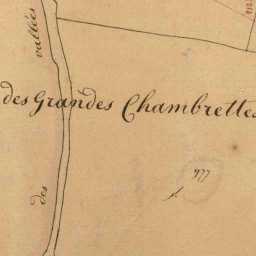 vallées
des Grandes Chambrettes
des